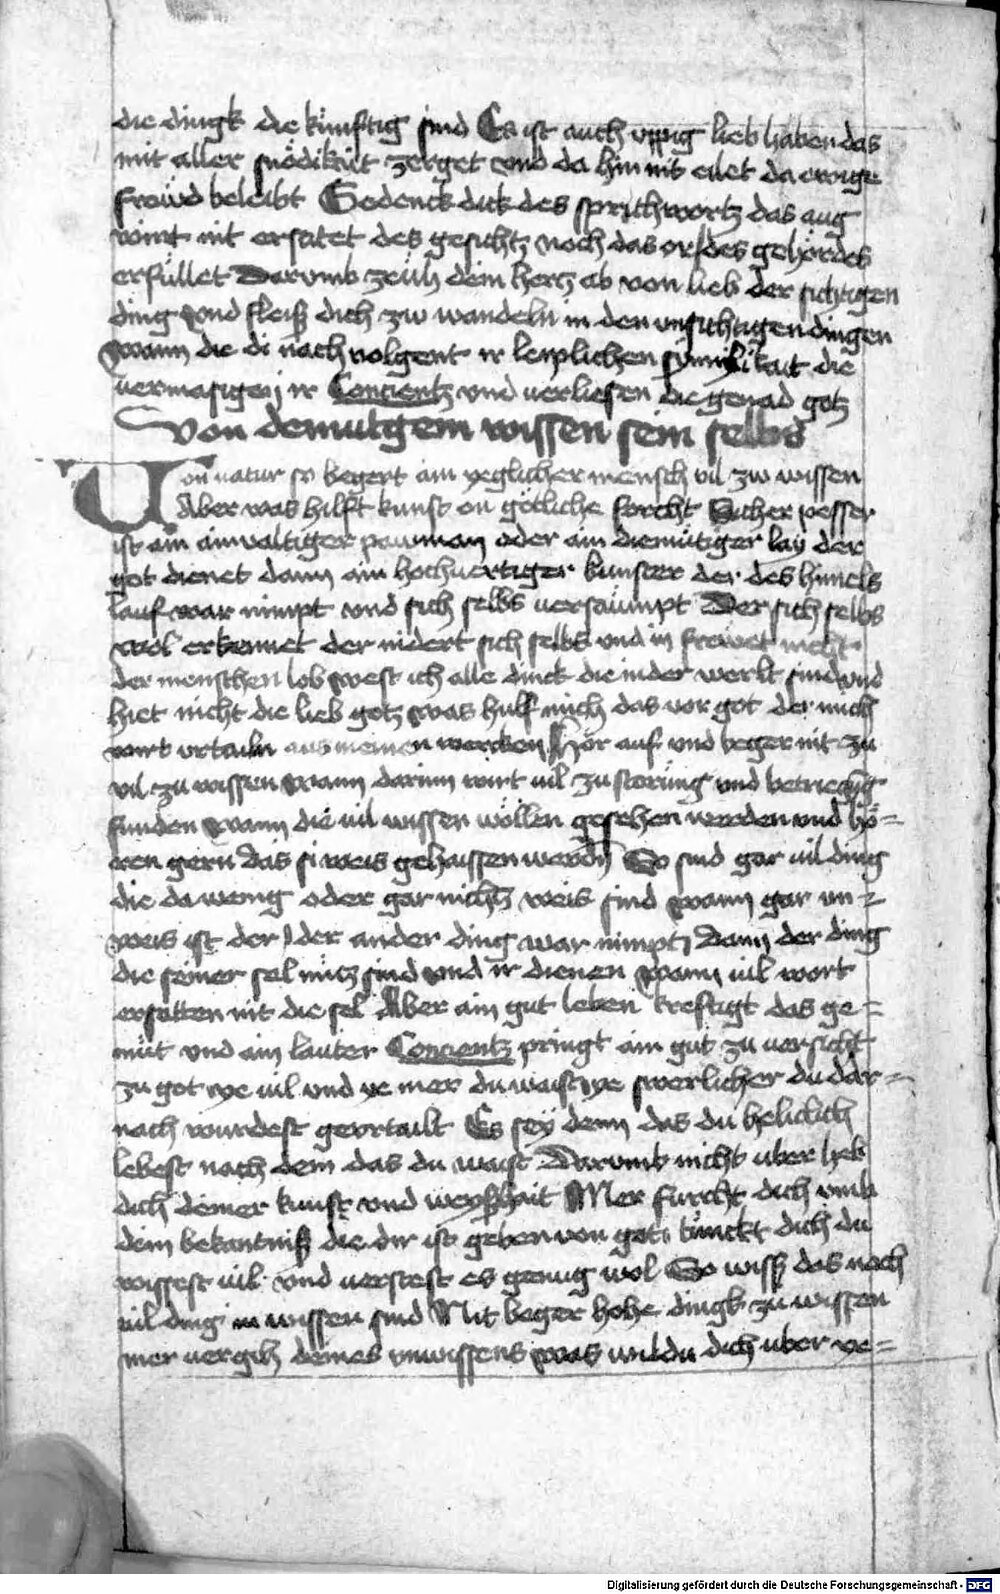 die dingk die künftig sind Es ist auch üppig lieb haben das
mit aller snödikait zerget vnd da hin nit eilet da ewige
freüd beleibt Gedenck dick des sprichwortz das aug
wirt nit ersatet des gesichtz noch das or des gehördes
erfüllet Darvmb zeüh dein hertz ab von lieb der sichtigen
ding vnd fleiß dich zw wandeln in den vnsichtigen dingen
wann die di nachvolgent ir leiplichen synnlikait die
vermasigen ir Concientz vnd verliesen die genad gotz
Von demutigem wissen sein selbs
Von natur so begert ain yeglicher mensch vil zw wissen
Aber was hilft kunst on götliche forcht Sicher pesser
ist ain ainvaltiger pawman oder ain diemütiger lay der
got dienet dann ain hochvertiger kunster der des himels
lauf war nimpt vnd sich selbs versäumpt Der sich selbs
wol erkennet der nidert sich selbs vnd in frewet nicht
der menschen lob west ich alle dinck die in der werlt sind vnd
hiet nicht die lieb gotz was hulf mich das vor got der mich
wirt vrtailn aus meinen wercken Hör auf vnd beger nit zu
vil zu wissen wann darinn wirt vil zustörung vnd betriegung
funden wann die vil wissen wöllen gesehen werden vnd hö=
ren gern das si weis gehaissen werdn So sind gar vil ding
die da wenig oder gar nichtz weis sind wann gar vn=
weis ist der der ander ding war nimpt dann der ding
die seiner sel nütz sind vnd ir dienen wann vil wort
ersatten nit die sel Aber ain gut leben kreftigt das ge=
müt vnd ain lauter Concientz pringt ain gut zuversicht
zu got ye vil vnd ye mer du waist ye swerlicher du dar=
nach wurdest gevrtailt Es sey denn das du heliclich
lebest nach dem das du waist Darvmb nicht vber heb
dich deiner kunst vnd weyßhait Mer furcht dich vmb
dein bekantniß die dir ist geben von got dünckt dich du
wissest vil vnd verstest es genug wol So wiß das noch
vil ding zu wissen sind Nit beger hohe dingk zu wissen
mer vergih deines vnwissens was wildu dich vber ye=
Digitalisierung gefördert durch die Deutsche Forschungsgemeinschaft - DFG